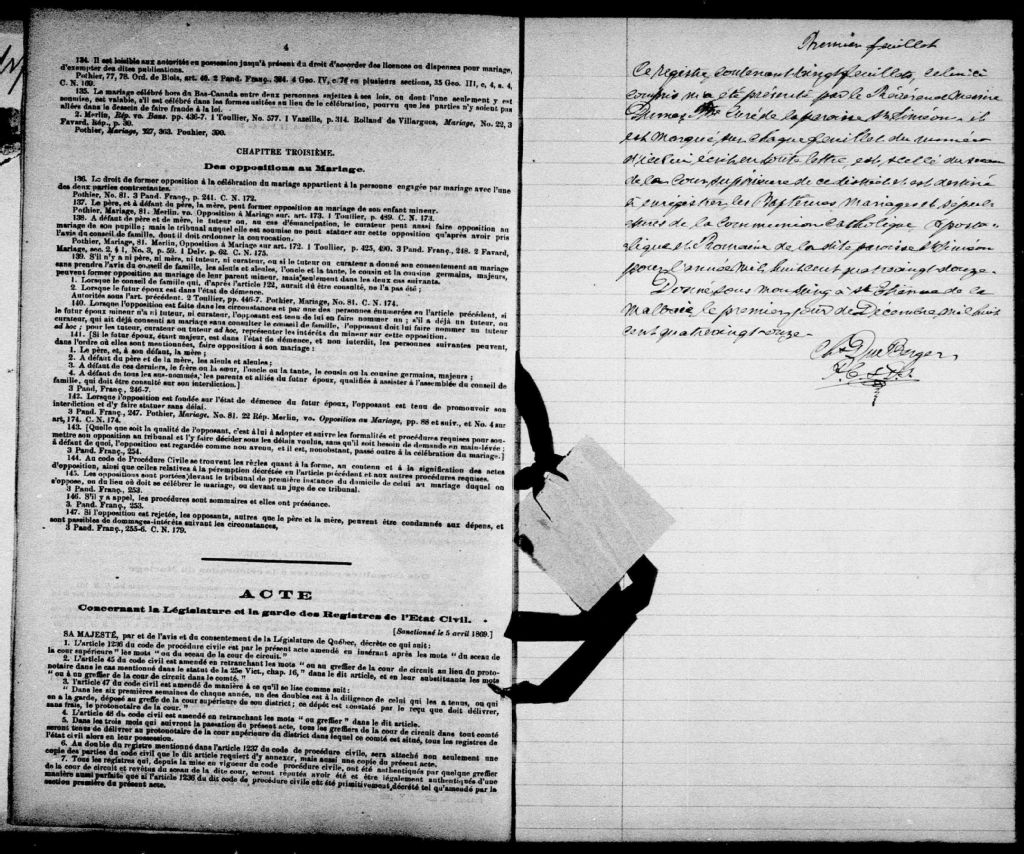 4
134. Il est loisible aux autorités en possession jusqu'à présent du droit d'accorder des licences ou dispenses pour mariage,
d'exempter des dites publications.
Pothier, 77, 78. Ord. de Blois, art. 40. 2 Pand. Franç., 364. 4 Geo. IV, c. 76 en plusieurs sections, 35 Geo. III, c. 4, s. 4,
C. N. 169.
135. Le mariage célébré hors du Bas-Canada entre deux personnes sujettes à ses lois, ou dont l'une seulement y est
soumise, est valable, s'il est célébré dans les formes usitées au lieu de la célébration, pourvu que les parties n'y soient pas
allées dans le dessein de faire fraude à la loi.
2. Merlin, Rép. vo. Bans. pp. 436-7. 1 Toullier, No. 577. 1 Vazeille, p. 314. Rolland de Villargues, Mariage, No. 22, 3
Favard, Rép., p. 30.
Pothier, Mariage, 327, 363. Pouhier, 390.
CHAPITRE TROISIÈME.
Des oppositions au Mariage.
136. Le droit de former opposition à la célébration du mariage appartient à la personne engagée par mariage avec l'une
des deux parties contractantes.
Pothier, No. 81. 3 Pand. Franç., p. 241. C. N. 172.
137. Le père, et à défaut du père, la mère, peut former opposition au mariage de son enfant mineur.
Pothier, Mariage, 81. Merlin. vo. Opposition à Mariage sur. art. 173. 1 Toullier, p. 489. C. N. 173.
138. A défaut de père et de mère, le tuteur ou, au cas d'émancipation, le curateur peut aussi faire opposition au
mariage de son pupille; mais le tribunal auquel elle est soumise ne peut statuer sur cette opposition qu'après avoir pris
l'avis du conseil de famille, dont il doit ordonner la convocation.
Pothier, Mariage, 81. Merlin, Opposition à Mariage sur art. 172. 1 Toullier, p. 425, 490. 3 Pand. Franç., 248. 2 Favard,
Mariage, sec. 2, § 1, No. 3, p. 59. 1 Delv. p. 62. C. N. 175.
139. S'il n'y a ni père, ni mère, ni tuteur, ni curateur, ou si le tuteur ou curateur a donné son consentement au mariage
sans prendre l'avis du conseil de famille, les aïeuls et aïeules, l'oncle et la tante, le cousin et la cousine germains, majeurs,
peuvent former opposition au mariage de leur parent mineur, mais seulement dans les deux cas suivants.
1. Lorsque le conseil de famille qui, d'après l'article 122, aurait dû être consulté, ne l'a pas été;
2. Lorsque le futur époux est dans l'état de démence.
Autorités sous l'art. précédent. 2 Toullier, pp. 446-7. Pothier, Mariage, No. 81. C. N. 174.
140. Lorsque l'opposition est faite dans les circonstances et par une des personnes énumérées en l'article précédent, si
le futur époux mineur n'a ni tuteur, ni curateur, l'opposant est tenu de lui en faire nommer un; s'il a déjà un tuteur, ou
curateur, qui ait déjà consenti au mariage sans consulter le conseil de famille, l'opposant doit lui faire nommer un tuteur
ad hoc; pour les tuteur, curateur ou tuteur ad hoc, représenter les intérêts du mineur sur cette opposition.
141. [Si le futur époux, étant majeur, est dans l'état de démence, et non interdit, les personnes suivantes peuvent,
dans l'ordre où elles sont mentionnées, faire opposition à son mariage:
1. Le père, et, à son défaut, la mère;
2. A défaut du père et de la mère, les aïeuls et aïeules;
3. A défaut de ces derniers, le frère ou la sœur, l'oncle ou la tante, le cousin ou la cousine germains, majeurs;
4. A défaut de tous les sus-nommés, les parents et alliés du futur époux, qualifiés à assister à l'assemblée du conseil de
famille, qui doit être consulté sur son interdiction.]
3 Pand. Franç., 246-7.
142. Lorsque l'opposition est fondée sur l'état de démence du futur époux, l'opposant est tenu de promouvoir son
interdiction et d'y faire statuer sans délai.
3 Pand. Franç., 247. Pothier, Mariage, No. 81. 22 Rép. Merlin, vo. Opposition au Mariage, pp. 88 et suiv., et No. 4 sur
art, 174. C. N. 174.
143. [Quelle que soit la qualité de l'opposant, c'est à lui à adopter et suivre les formalités et procédures requises pour sou-
mettre son opposition au tribunal et l'y faire décider sous les délais voulus, sans qu'il soit besoin de demande en main-levée;
à défaut de quoi, l'opposition est regardée comme non avenu, et il est, nonobstant, passé outre à la célébration du mariage.]
3 Pand. Franç., 254.
144. Au code de Procédure Civile se trouvent les règles quant à la forme, au contenu et à la signification des actes
d'opposition, ainsi que celles relatives à la péremption décrétée en l'article précédent et aux autres procédures requises.
145. Les oppositions sont portées devant le tribunal de première instance du domicile de celui au mariage duquel on
s'oppose, ou du lieu où doit se célébrer le mariage, ou devant un juge de ce tribunal.
3 Pand. Franç., 253.
146. S'il y a appel, les procédures sont sommaires et elles ont préséance.
3. Pand. Franç., 253.
147. Si l'opposition est rejetée, les opposants, autres que le père et la mère, peuvent être condamnés aux dépens, et
sont passibles de dommages-intérêts suivant les circonstances,
3 Pand. Franç., 255-6. C. N. 179.
ACTE
Concernant la Législature et la garde des Registres de l'Etat Civil.
[Sanctionné le 5 avril 1869.]
SA MAJESTÉ, par et de l'avis et du consentement de la Législature de Québec, décrète ce qui suit:
1. L'article 1236 du code de procédure civile est par le présent acte amendé en insérant après les mots "du sceau de
la cour supérieure" les mots "ou du sceau de la cour de circuit."
2. L'article 45 du code civil est amendé en retranchant les mots "ou au greffier de la cour de circuit au lieu du proto-
notaire dans le cas mentionné dans le statut de la 25e Vict., chap. 16," dans le dit article, et en leur substituant les mots
"ou à un greffier de la cour de circuit dans le comté."
3. l'article 47 du code civil est amendé de manière à ce qu'il se lise comme suit:
"Dans les six premières semaines de chaque année, un des doubles est à la diligence de celui qui les a tenus, ou qui
en a la garde, déposé au greffe de la cour supérieure de son district; ce dépôt est constaté par le reçu que doit délivrer,
sans frais, le protonotaire de la cour."
4. L'article 48 du code civil est amendé en retranchant les mots "ou greffier" dans le dit article.
5. Dans les trois mois qui suivront la passation du présent acte, tous les greffiers de la cour de circuit dans tout comté
seront tenus de délivrer au protonotaire de la cour supérieure du district dans lequel ce comté est situé, tous les registres de
l'état civil alors en leur possession.
6. Au double du registre mentionné dans l'article 1237 du code de procédure civile, sera attaché non seulement une
copie des parties du code civil que le dit article requiert d'y annexer, mais aussi une copie du présent acte.
7. Tous les registres qui, depuis la mise en vigueur du code procédure civile, ont été authentiqués par quelque greffier
de la cour de circuit et revêtus du sceau de la dite cour, seront réputés avoir été et être légalement authentiqués d'une
manière aussi parfaite que si l'article 1236 du dit code de procédure civile eût été primitivement décrété tel qu'amendé par la
section première du présent acte.
Premier feuillet
Ce registre contenant vingt feuillets, celui ci
compris m'a été présenté par le Révérend Messire
Dumas Ptre Curé de la paroisse St Siméon. il
est marqué sur chaque feuillet du numéro
d'icelui écrit en toute lettre, est scellé du sceau
de la Cour Supérieure de ce district et est destiné
à enregistrer les Baptêmes Mariages et Sépul-
tures de la Communion Catholique Aposto-
lique et Romaine de la dite paroisse St Siméon
pour l'année mil huit cent quatre vingt douze.
Donné sous mon seing à St Etienne de la
Malbaie le premier jour de Décembre mil huit
cent quatre vingt onze.
Chs Du Berger
P. C. S.